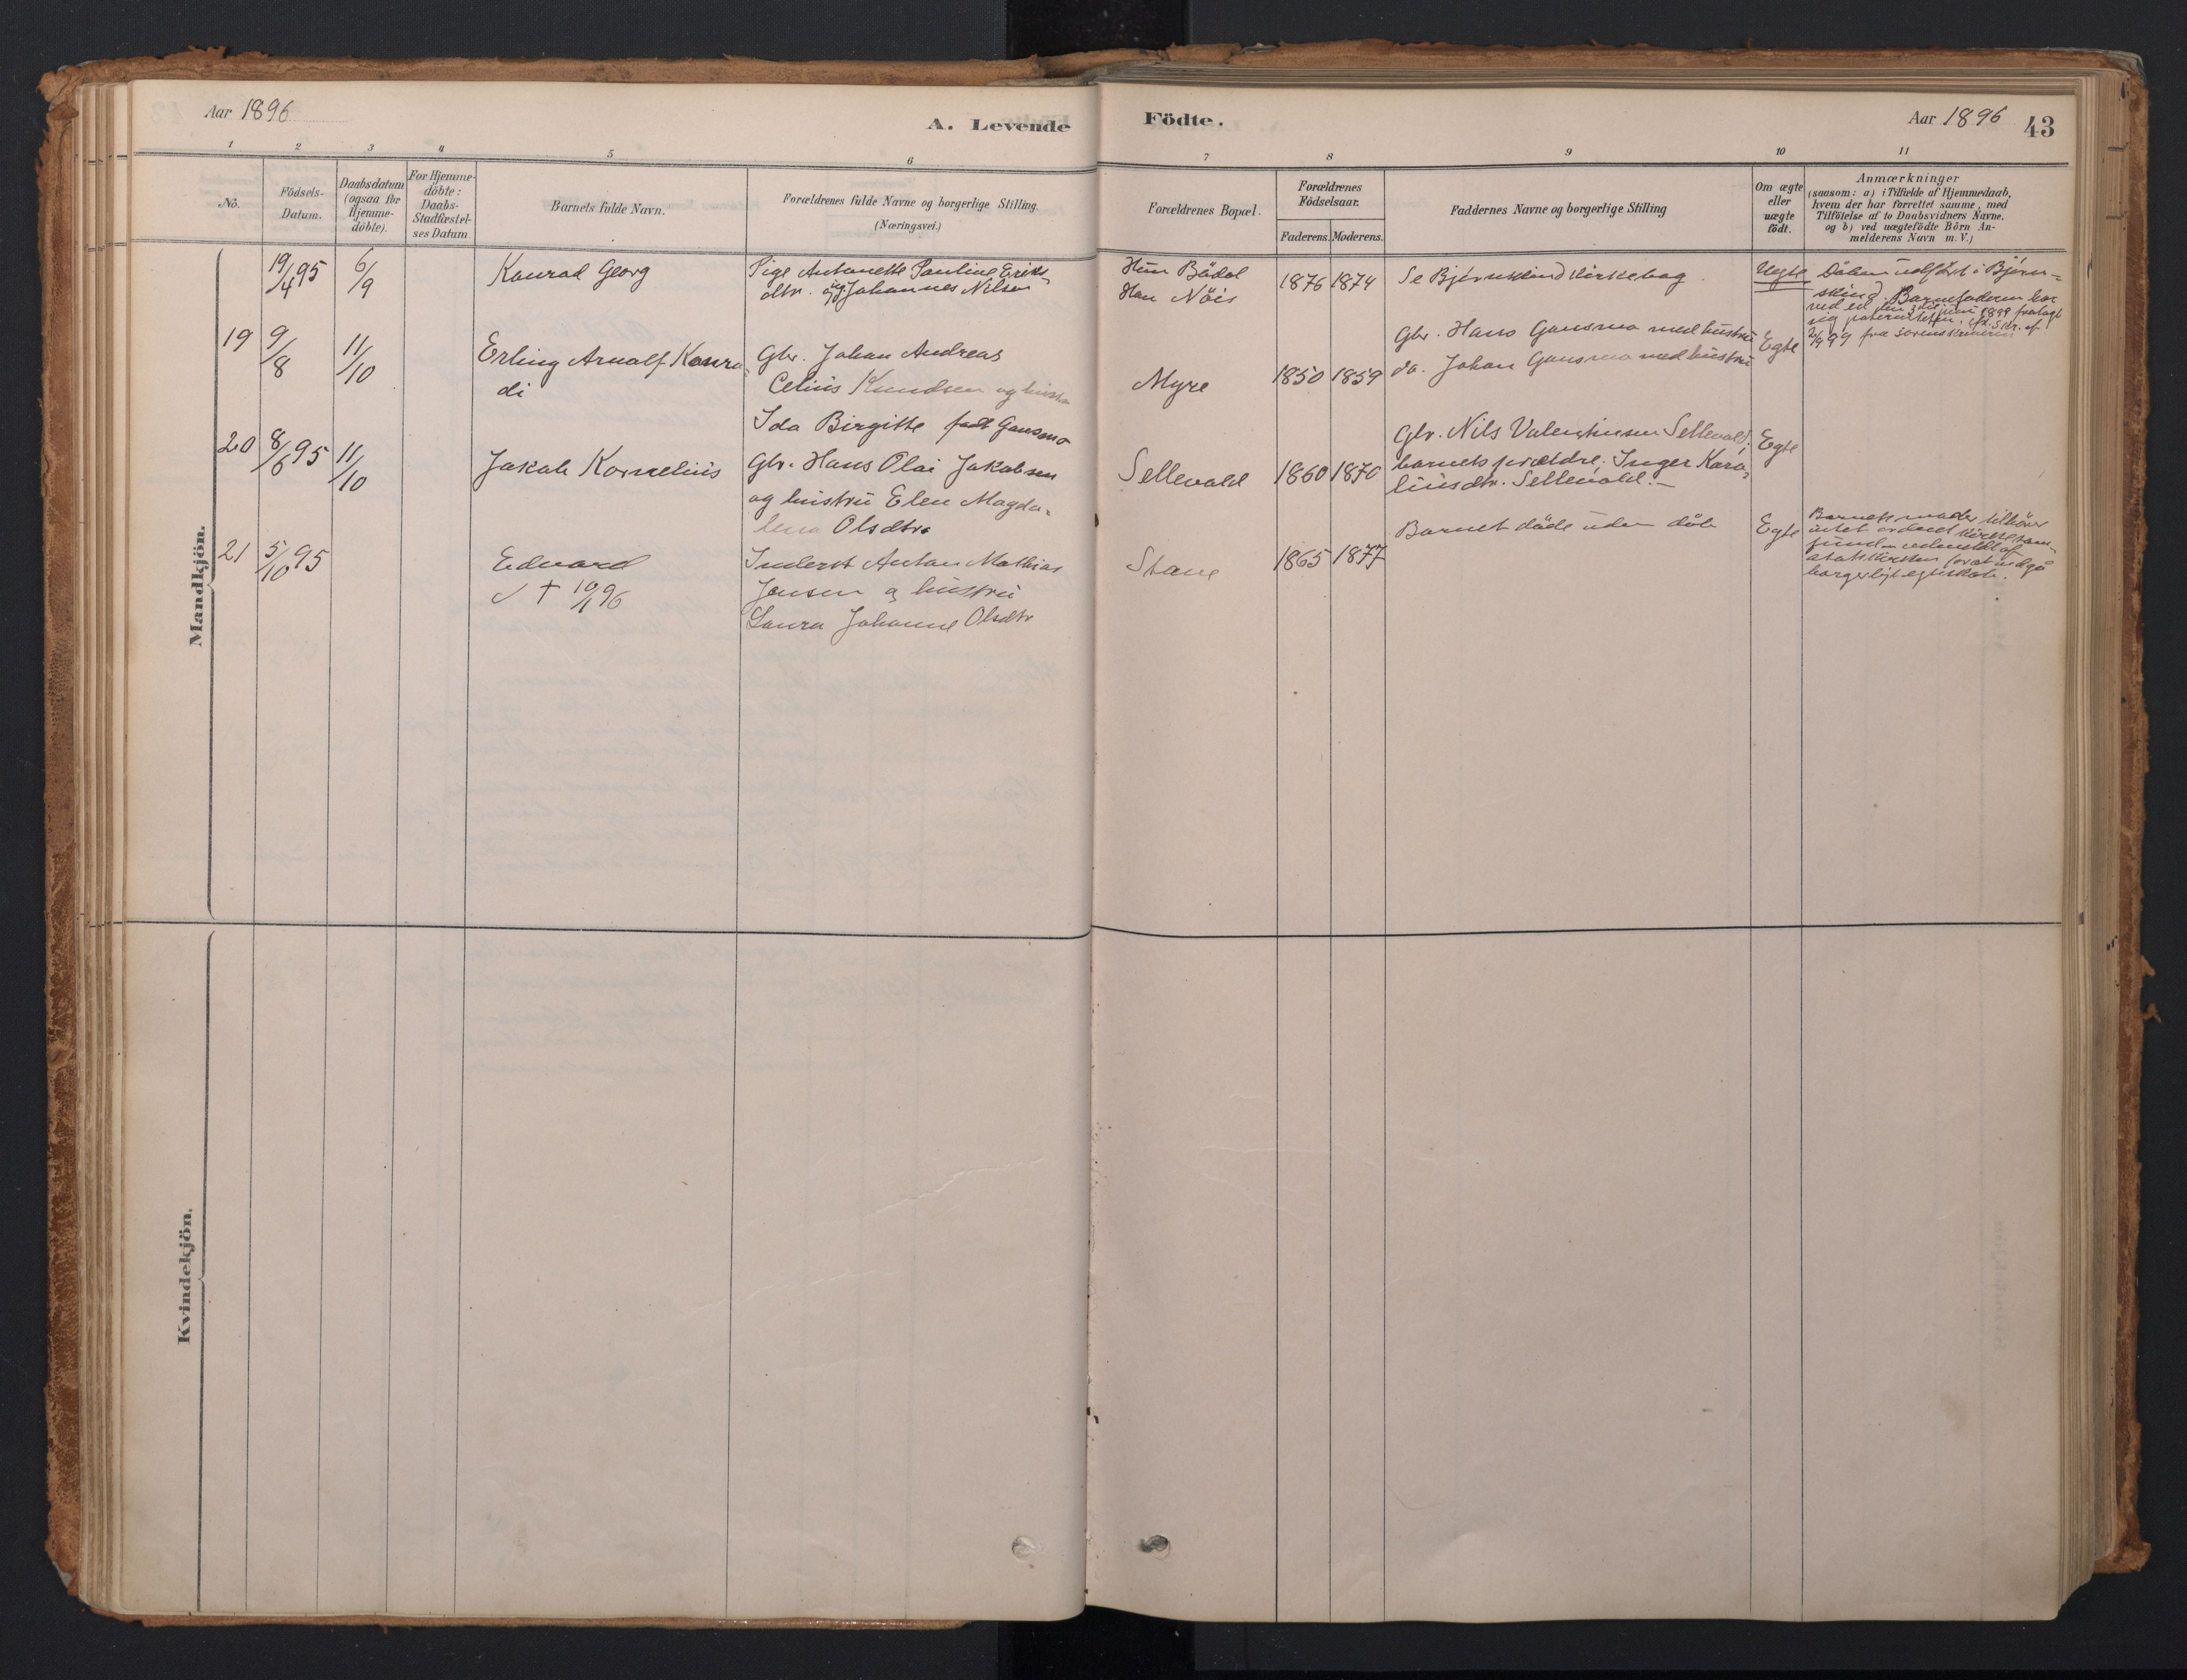 Aar 1896
A. Levende Födte.
Aar 1896 43
1 2 3 4 5 6 7 8 9 10 11
No.
Födsels-Datum.
Daabsdatum (ogsaa for Hjemme-döbte).
For Hjemme-döbte: Daabs-Stadfæstel-ses Datum.
Barnets fulde Navn.
Forældrenes fulde Navne og borgerlige Stilling.
(Næringsvei.)
Forældrenes Bopæl.
Forældrenes Födselsaar.
Faderens. Moderens.
Faddernes Navne og borgerlige Stilling
Om ægte eller uægte födt.
Anmærkninger
(saasom: a) i Tilfælde af Hjemmedaab,
hvem der har forrettet samme, med
Tilföielse af to Daabsvidners Navne.
og b) ved uægtefödte Börn An-
melderens Navn m. V.)
Mandkjön.
19/4 95 6/9 Konrad Georg
Pige Antonette Pauline Eriks-
dtr. og Johannes Nilsen
Hun Bådol
Han Nöis
1876 1874
Se Bjørnskind kirkebog
Uegte
Dåben udført i Björn-
skind. Barnefaderen har
ved ed den juni 1899 fralagt
sig paterniteten. skr. af
99 fra Sorenskriveren
19 9/8 11/10 Erling Arnolf Konra-
di
Gbr. Johan Andreas
Celius Knudsen og hustru
Ida Birgitte født Gausmo
Myre
1850 1859
Gbr. Hans Gausmo med hustru
do. Johan Gausmo med hustru
Egte
20 8/6 95 11/10 Jakob Kornelius
Gbr. Hans Olai Jakobsen
og hustru Elen Magda-
lena Olsdtr.
Sellevold
1860 1870
Gbr. Nils Valentinsen Sellevold.
barnets forældre. Inger Karo-
liusdtr. Sellevold.-
Egte
21 5/10 95
Edvard
✓ † 10/1 96
Inderst Anton Mathias
Jensen og hustru
Laura Johanne Olsdtr
Stave
1865 1877
Barnet döde uden dåb
Egte
Barnets moder tilhörer
intet ordend kirkesam-
fund udmeldt af
statskirken for at indgå
borgerligt egteskab.
Kvindekjön.